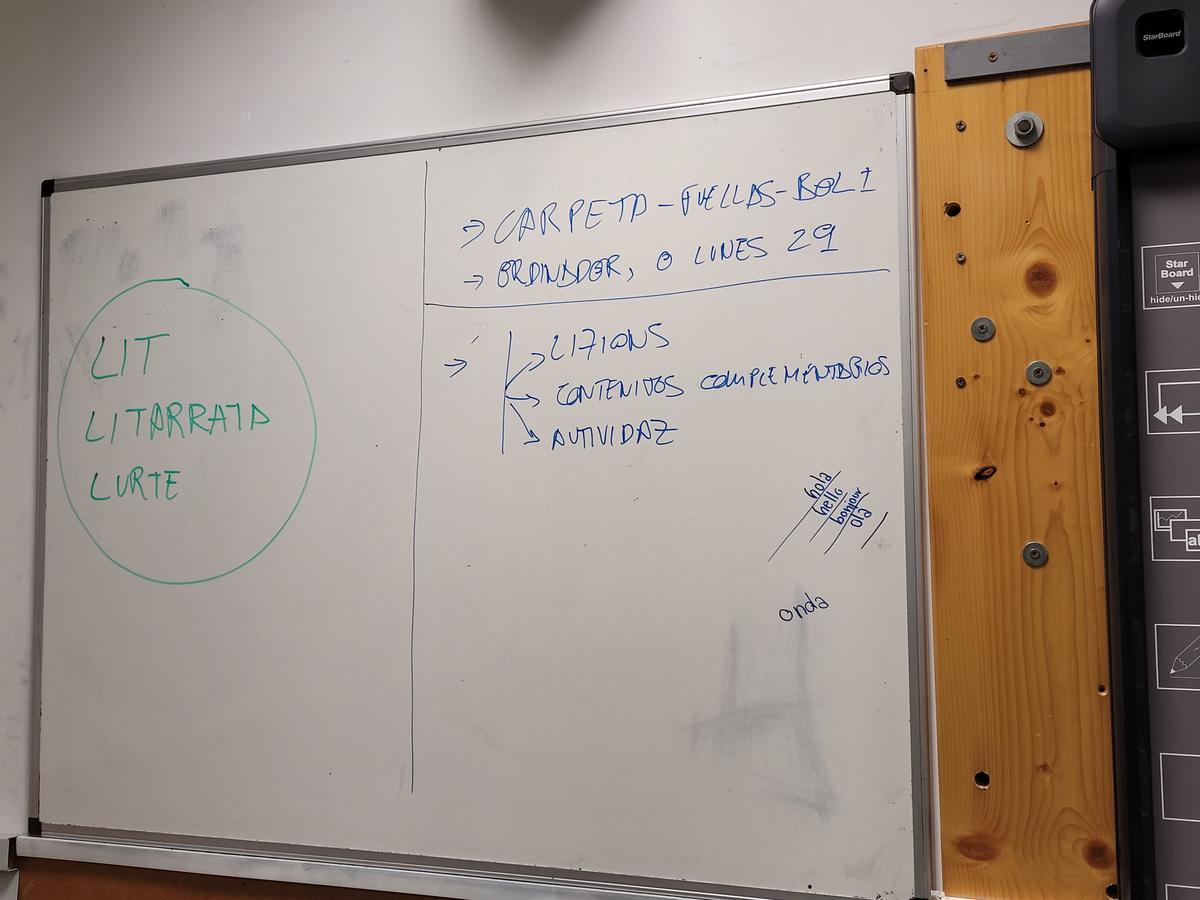 LIT
LITARRATA
LURTE
→ CARPETA - FUELLAS - BOLI
→ ORDINADOR, O LUNES 29
→ LIZIONS
→ CONTENITOS COMPLEMENTARIOS
→ AUTIVIDAZ
hola
hello
bonjour
olá
onda
StarBoard
Star
Board
hide/un-hid